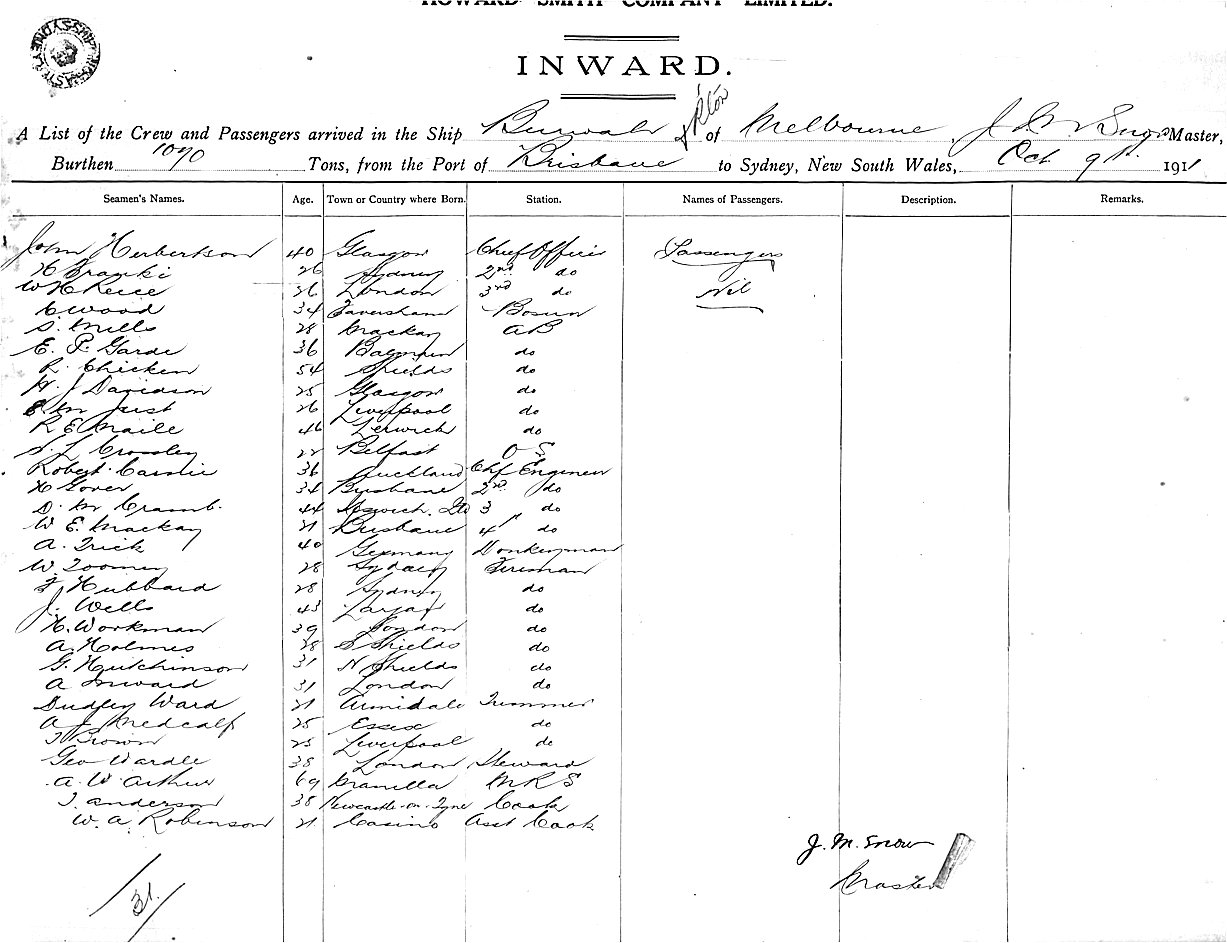 HOWARD SMITH COMPANY LIMITED.
INWARD.
A List of the Crew and Passengers arrived in the Ship of Melbourne, Master,
Burthen 1070 Tons, from the Port of Brisbane to Sydney, New South Wales, Oct 9th 1911
Seamen's Names. Age. Town or Country where Born. Station. Names of Passengers. Description. Remarks.
John Herbertson 40 Glasgow Chief Officer Passengers
H Branki 26 Sydney 2nd do
W H Reece 26 London 3rd do Nil
C Wood 34 Faversham Bosun
S. Mills 28 Mackay AB
E. P. Garde 36 Balmain do
R. Chicken 54 Shields do
H. J Davidson 25 Glasgow do
E M Just 26 Liverpool do
R E Maile 46 Lerwick do
S. L Crossley 22 Belfast O S
Robert 36 Auckland Chf Engineer
H Gover 34 Brisbane 2nd do
D. M Cramb. 44 Ipswich. Qld 3 do
W E. Mackay 21 Brisbane 4th do
A. Trick 40 Germany Donkeyman
W. Toomey 28 Sydney Fireman
F Hubbard 28 Sydney do
J. Wells 43 do
H. Workman 39 London do
A. Holmes 28 S Shields do
G. Hutchinson 31 N Shields do
A Inward 31 London do
Dudley Ward 21 Armidale Trimmer
A J Medcalf 25 Essex do
T Brown 25 Liverpool do
Geo Wardle 38 London Steward
A. W. Arthur 69 Manilla M R S
T. Anderson 38 Newcastle-on-Tyne Cook
W. A. Robinson 21 Casino Asst Cook
J. M. Snow
Master
31.